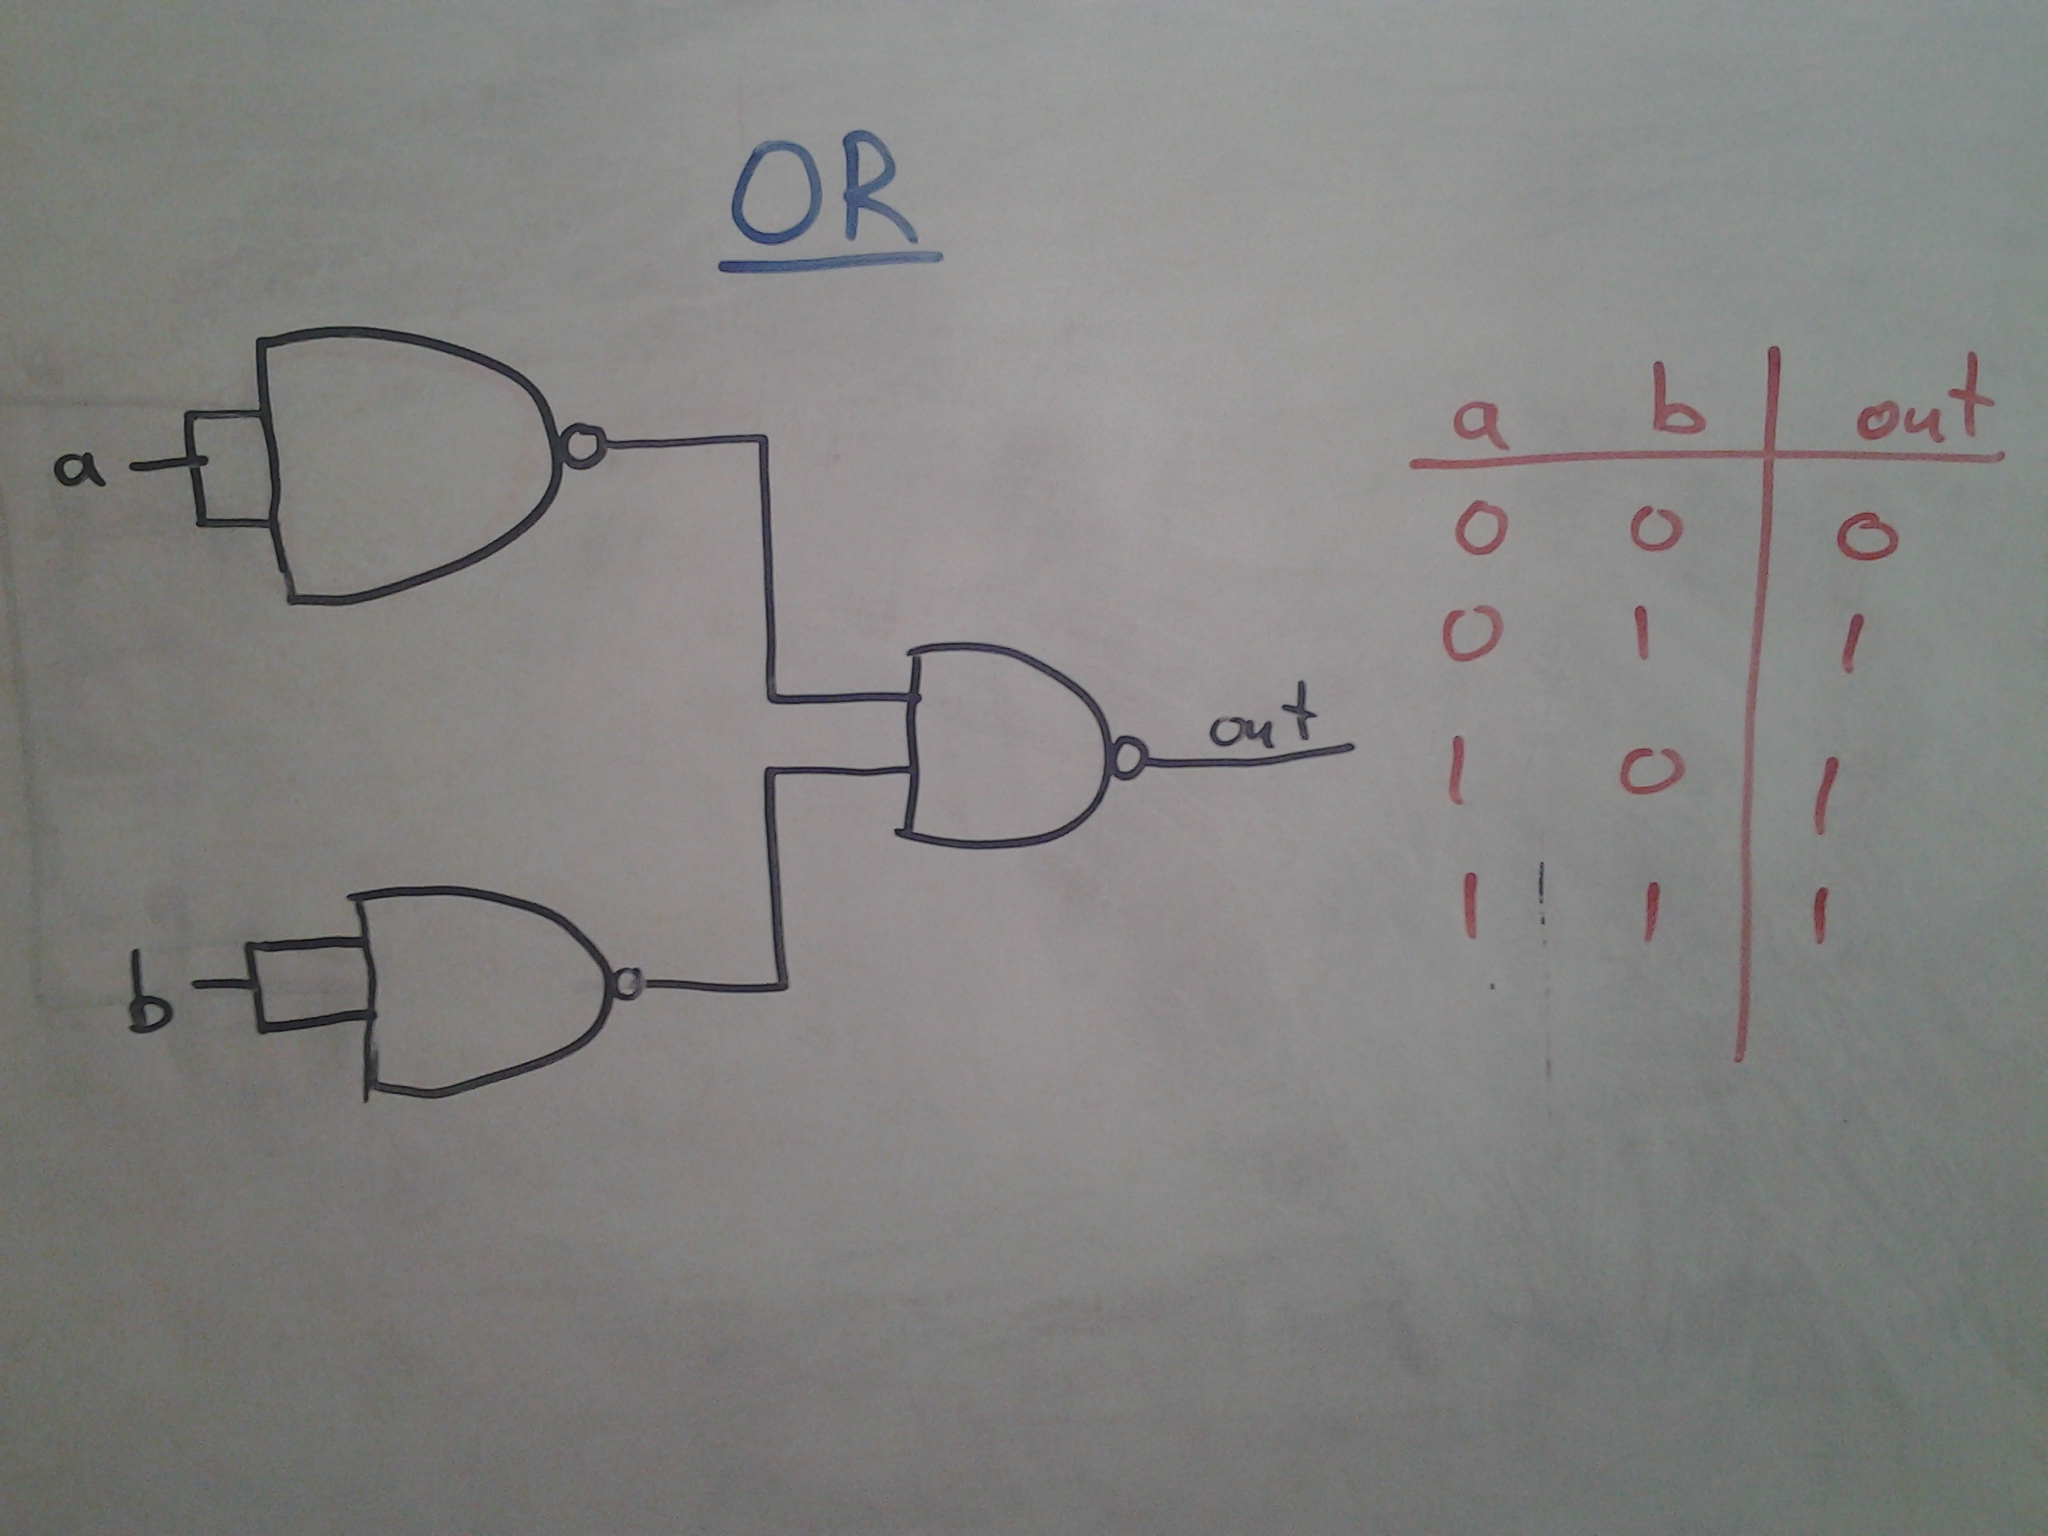 OR
a
b
out
a b out
0 0 0
0 1 1
1 0 1
1 1 1